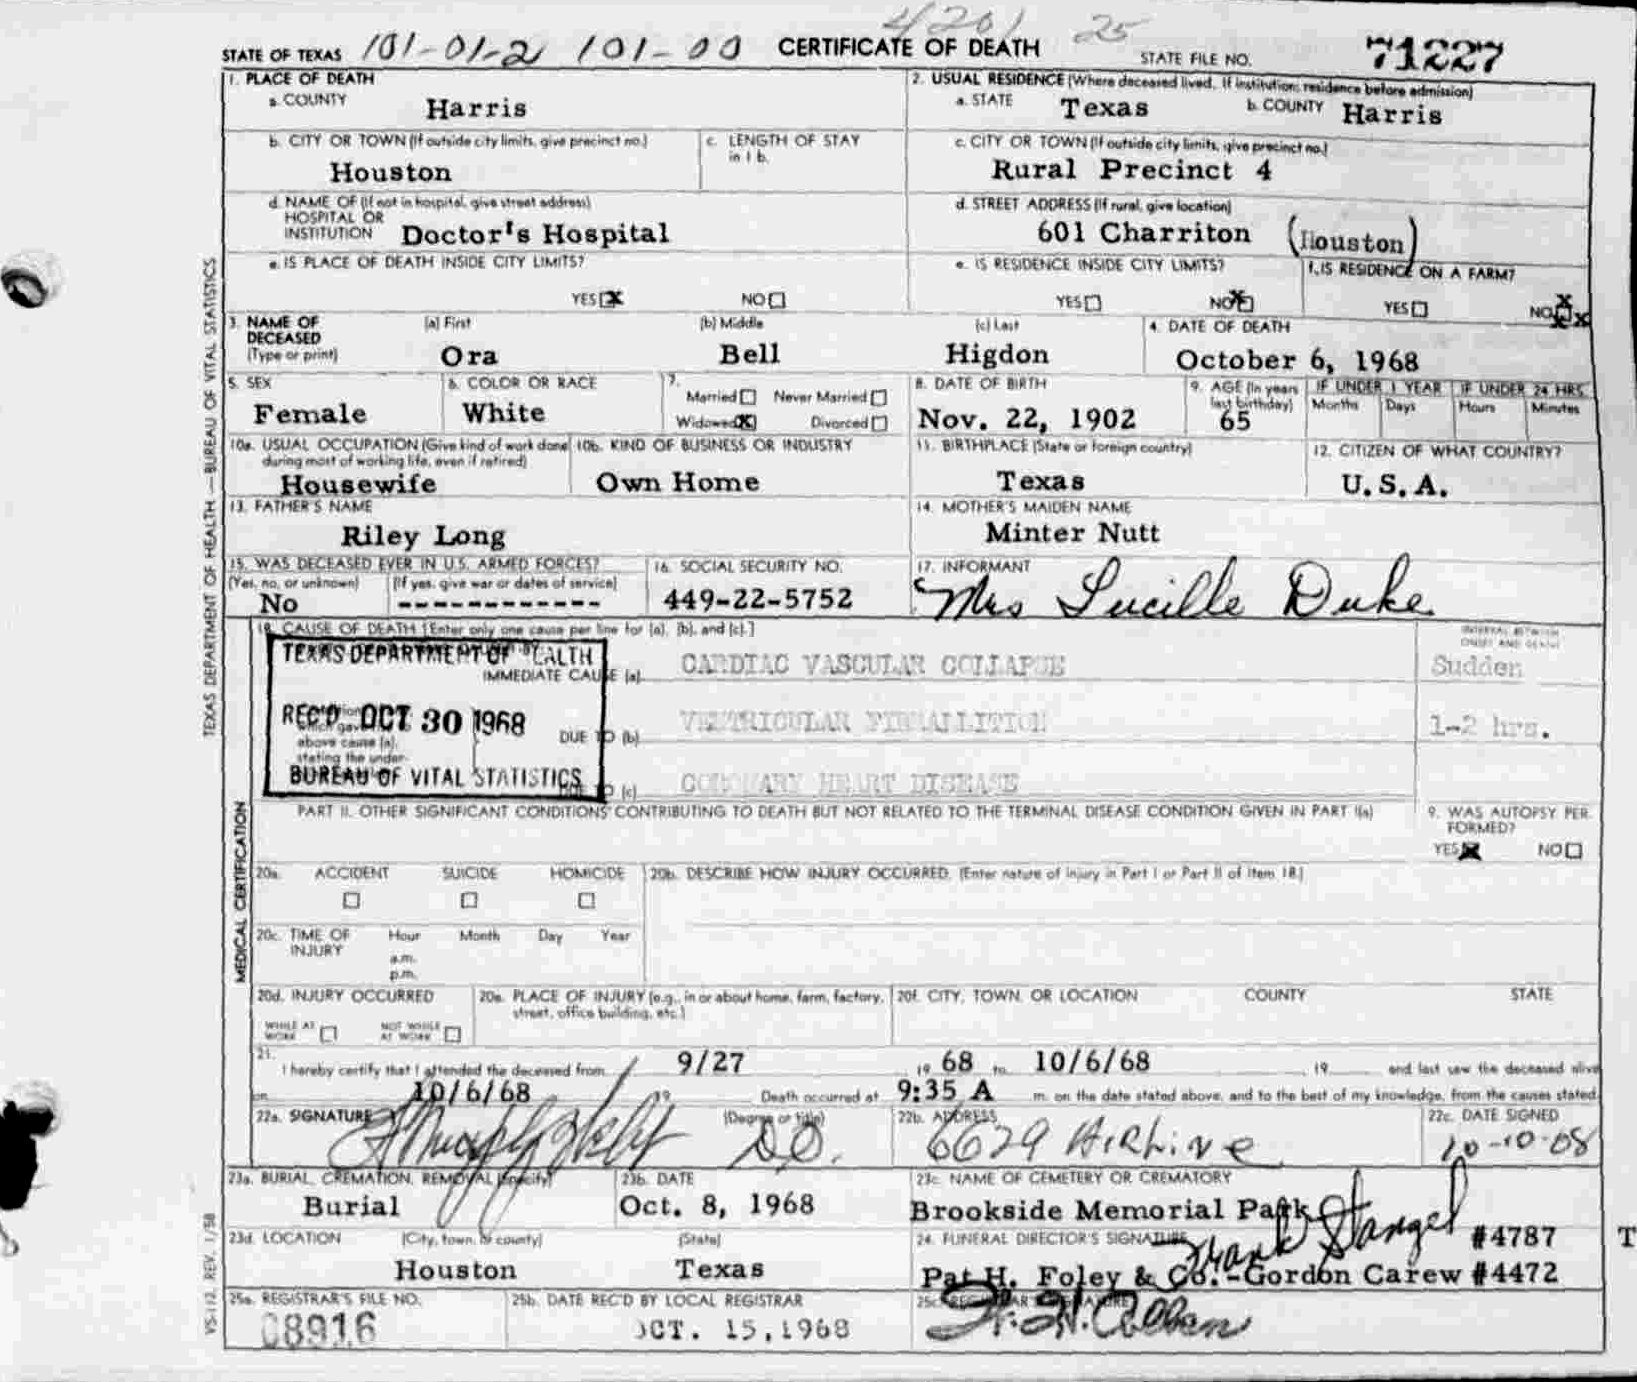 4201 25
STATE OF TEXAS 101-01-2 101-00 CERTIFICATE OF DEATH STATE FILE NO. 71227
1. PLACE OF DEATH
a. COUNTY Harris
2. USUAL RESIDENCE (Where deceased lived. If institution: residence before admission)
a. STATE Texas b. COUNTY Harris
b. CITY OR TOWN (If outside city limits, give precinct no.) Houston
c. LENGTH OF STAY in 1 b.
c. CITY OR TOWN (If outside city limits, give precinct no.)
Rural Precinct 4
d. NAME OF (If not in hospital, give street address)
HOSPITAL OR
INSTITUTION Doctor's Hospital
d. STREET ADDRESS (If rural, give location)
601 Charriton (Houston)
e. IS PLACE OF DEATH INSIDE CITY LIMITS?
YES X NO
e. IS RESIDENCE INSIDE CITY LIMITS?
YES NO X
f. IS RESIDENCE ON A FARM?
YES NO X X
3. NAME OF DECEASED (Type or print)
(a) First (b) Middle (c) Last
Ora Bell Higdon
4. DATE OF DEATH
October 6, 1968
5. SEX
Female
6. COLOR OR RACE
White
7.
Married Never Married
Widowed X Divorced
8. DATE OF BIRTH
Nov. 22, 1902
9. AGE (In years last birthday)
65
IF UNDER 1 YEAR IF UNDER 24 HRS.
Months Days Hours Minutes
10a. USUAL OCCUPATION (Give kind of work done during most of working life, even if retired)
Housewife
10b. KIND OF BUSINESS OR INDUSTRY
Own Home
11. BIRTHPLACE (State or foreign country)
Texas
12. CITIZEN OF WHAT COUNTRY?
U.S.A.
13. FATHER'S NAME
Riley Long
14. MOTHER'S MAIDEN NAME
Minter Nutt
15. WAS DECEASED EVER IN U.S. ARMED FORCES?
(Yes, no, or unknown) (If yes, give war or dates of service)
No ------------
16. SOCIAL SECURITY NO.
449-22-5752
17. INFORMANT
Mrs Lucille Duke
18. CAUSE OF DEATH [Enter only one cause per line for (a), (b), and (c).]
INTERVAL BETWEEN
ONSET AND DEATH
TEXAS DEPARTMENT OF HEALTH
IMMEDIATE CAUSE (a) CARDIAC VASCULAR COLLAPSE Sudden
REC'D OCT 30 1968
above cause (a),
stating the under-
DUE TO (b) 1-2 hrs.
BUREAU OF VITAL STATISTICS
DUE TO (c) CORONARY HEART DISEASE
PART II. OTHER SIGNIFICANT CONDITIONS CONTRIBUTING TO DEATH BUT NOT RELATED TO THE TERMINAL DISEASE CONDITION GIVEN IN PART I(a)
9. WAS AUTOPSY PER-
FORMED?
YES X NO
20a. ACCIDENT SUICIDE HOMICIDE
20b. DESCRIBE HOW INJURY OCCURRED. (Enter nature of injury in Part I or Part II of item 18.)
20c. TIME OF INJURY Hour Month Day Year
a.m.
p.m.
20d. INJURY OCCURRED
WHILE AT WORK NOT WHILE AT WORK
20e. PLACE OF INJURY (e.g., in or about home, farm, factory, street, office building, etc.)
20f. CITY, TOWN, OR LOCATION COUNTY STATE
21.
I hereby certify that I attended the deceased from 9/27 19 68 to 10/6/68 19 and last saw the deceased alive
on 10/6/68 19 Death occurred at 9:35 A m. on the date stated above, and to the best of my knowledge, from the causes stated.
22a. SIGNATURE (Degree or title) DO.
22b. ADDRESS
6629 Airline
22c. DATE SIGNED
10-10-68
23a. BURIAL, CREMATION, REMOVAL (Specify)
Burial
23b. DATE
Oct. 8, 1968
23c. NAME OF CEMETERY OR CREMATORY
Brookside Memorial Park
23d. LOCATION (City, town, or county) (State)
Houston Texas
24. FUNERAL DIRECTOR'S SIGNATURE Frank Stangel #4787
Pat H. Foley & Co.-Gordon Carew #4472
25a. REGISTRAR'S FILE NO.
08916
25b. DATE REC'D BY LOCAL REGISTRAR
OCT. 15, 1968
25c. REGISTRAR'S SIGNATURE
TEXAS DEPARTMENT OF HEALTH — BUREAU OF VITAL STATISTICS
MEDICAL CERTIFICATION
VS-112 REV. 1/58
T